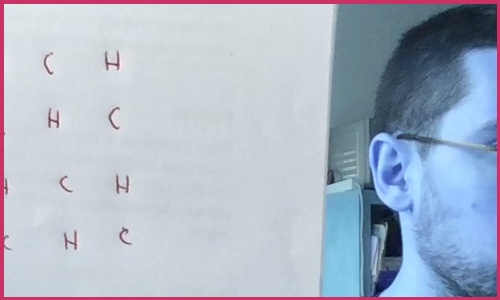 C H
H C
H C H
C H C